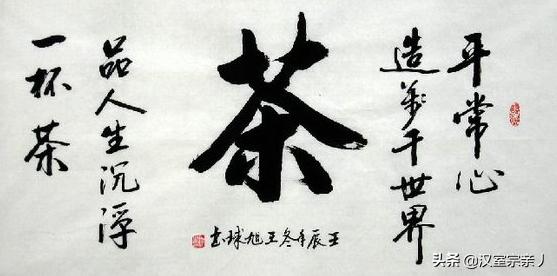 平常心
造萬千世界
茶
壬辰年冬王旭球书
品人生沉浮
一杯茶
头条 @汉室宗亲丿